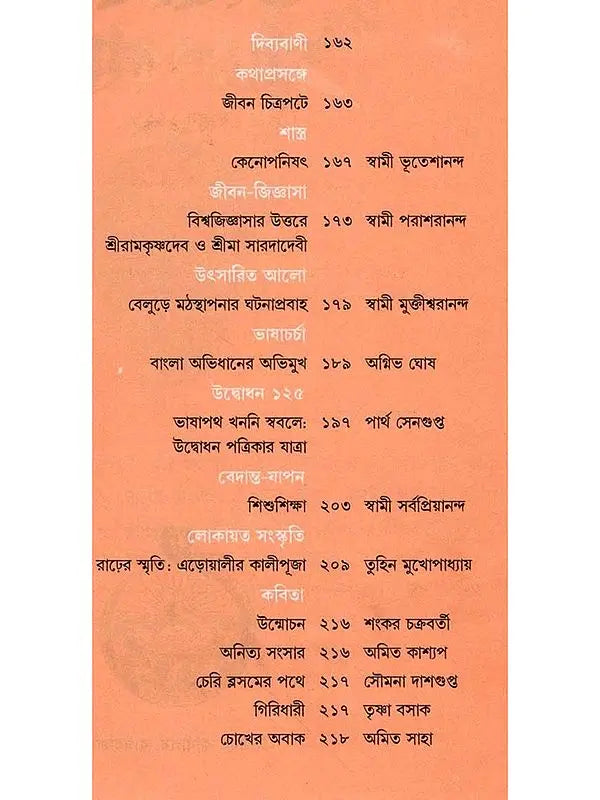 দিব্যবাণী ১৬২
কথাপ্রসঙ্গে
জীবন চিত্রপটে ১৬৩
শাস্ত্র
কেনোপনিষৎ ১৬৭ স্বামী ভূতেশানন্দ
জীবন-জিজ্ঞাসা
বিশ্বজিজ্ঞাসার উত্তরে ১৭৩ স্বামী পরাশরানন্দ
শ্রীরামকৃষ্ণদেব ও শ্রীমা সারদাদেবী
উৎসারিত আলো
বেলুড়ে মঠস্থাপনার ঘটনাপ্রবাহ ১৭৯ স্বামী মুক্তীশ্বরানন্দ
ভাষাচর্চা
বাংলা অভিধানের অভিমুখ ১৮৯ অগ্নিভ ঘোষ
উদ্বোধন ১২৫
ভাষাপথ খননি স্ববলে: ১৯৭ পার্থ সেনগুপ্ত
উদ্বোধন পত্রিকার যাত্রা
বেদান্ত-যাপন
শিশুশিক্ষা ২০৩ স্বামী সর্বপ্রিয়ানন্দ
লোকায়ত সংস্কৃতি
রাঢ়ের স্মৃতি: এড়োয়ালীর কালীপূজা ২০৯ তুহিন মুখোপাধ্যায়
কবিতা
উন্মোচন ২১৬ শংকর চক্রবর্তী
অনিত্য সংসার ২১৬ অমিত কাশ্যপ
চেরি ব্লসমের পথে ২১৭ সৌমনা দাশগুপ্ত
গিরিধারী ২১৭ তৃষ্ণা বসাক
চোখের অবাক ২১৮ অমিত সাহা